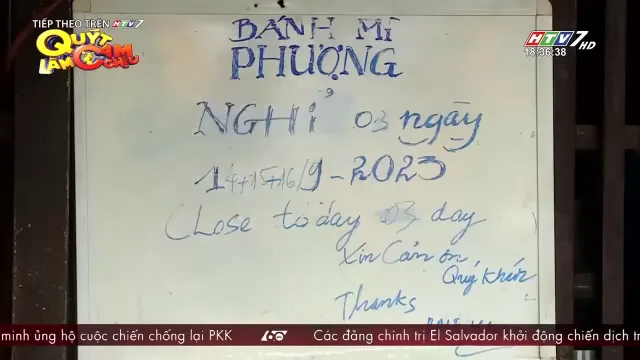 TIẾP THEO TRÊN HTV7
QUÝT LÀM CAM CHỊU
HTV7 HD
18:36:38
BÁNH MÌ
PHƯỢNG
NGHỈ 03 ngày
14+15+16/9-2023
Close today 03 day
Xin Cảm ơn
Quý Khách
Thanks
minh ủng hộ cuộc chiến chống lại PKK
Các đảng chính trị El Salvador khởi động chiến dịch tr